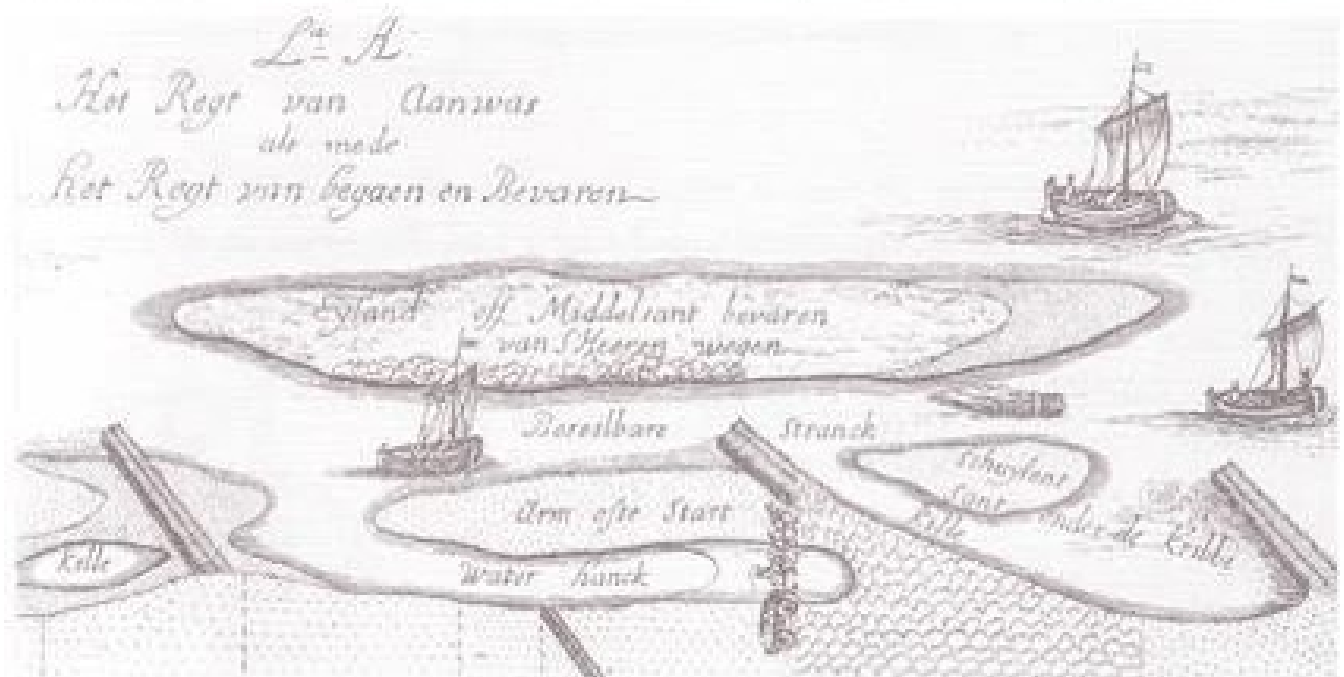 L.ª A.
Het Regt van Aanwas
als mede
het Regt van begaen en Bevaren
Eyland off Middelsant bevaren
van S'Heeren wegen
Beseilbare Stranck
Schuylent
Sant
Arm ofte Start
Kille onder de Cribbe
Kille
Water hanck